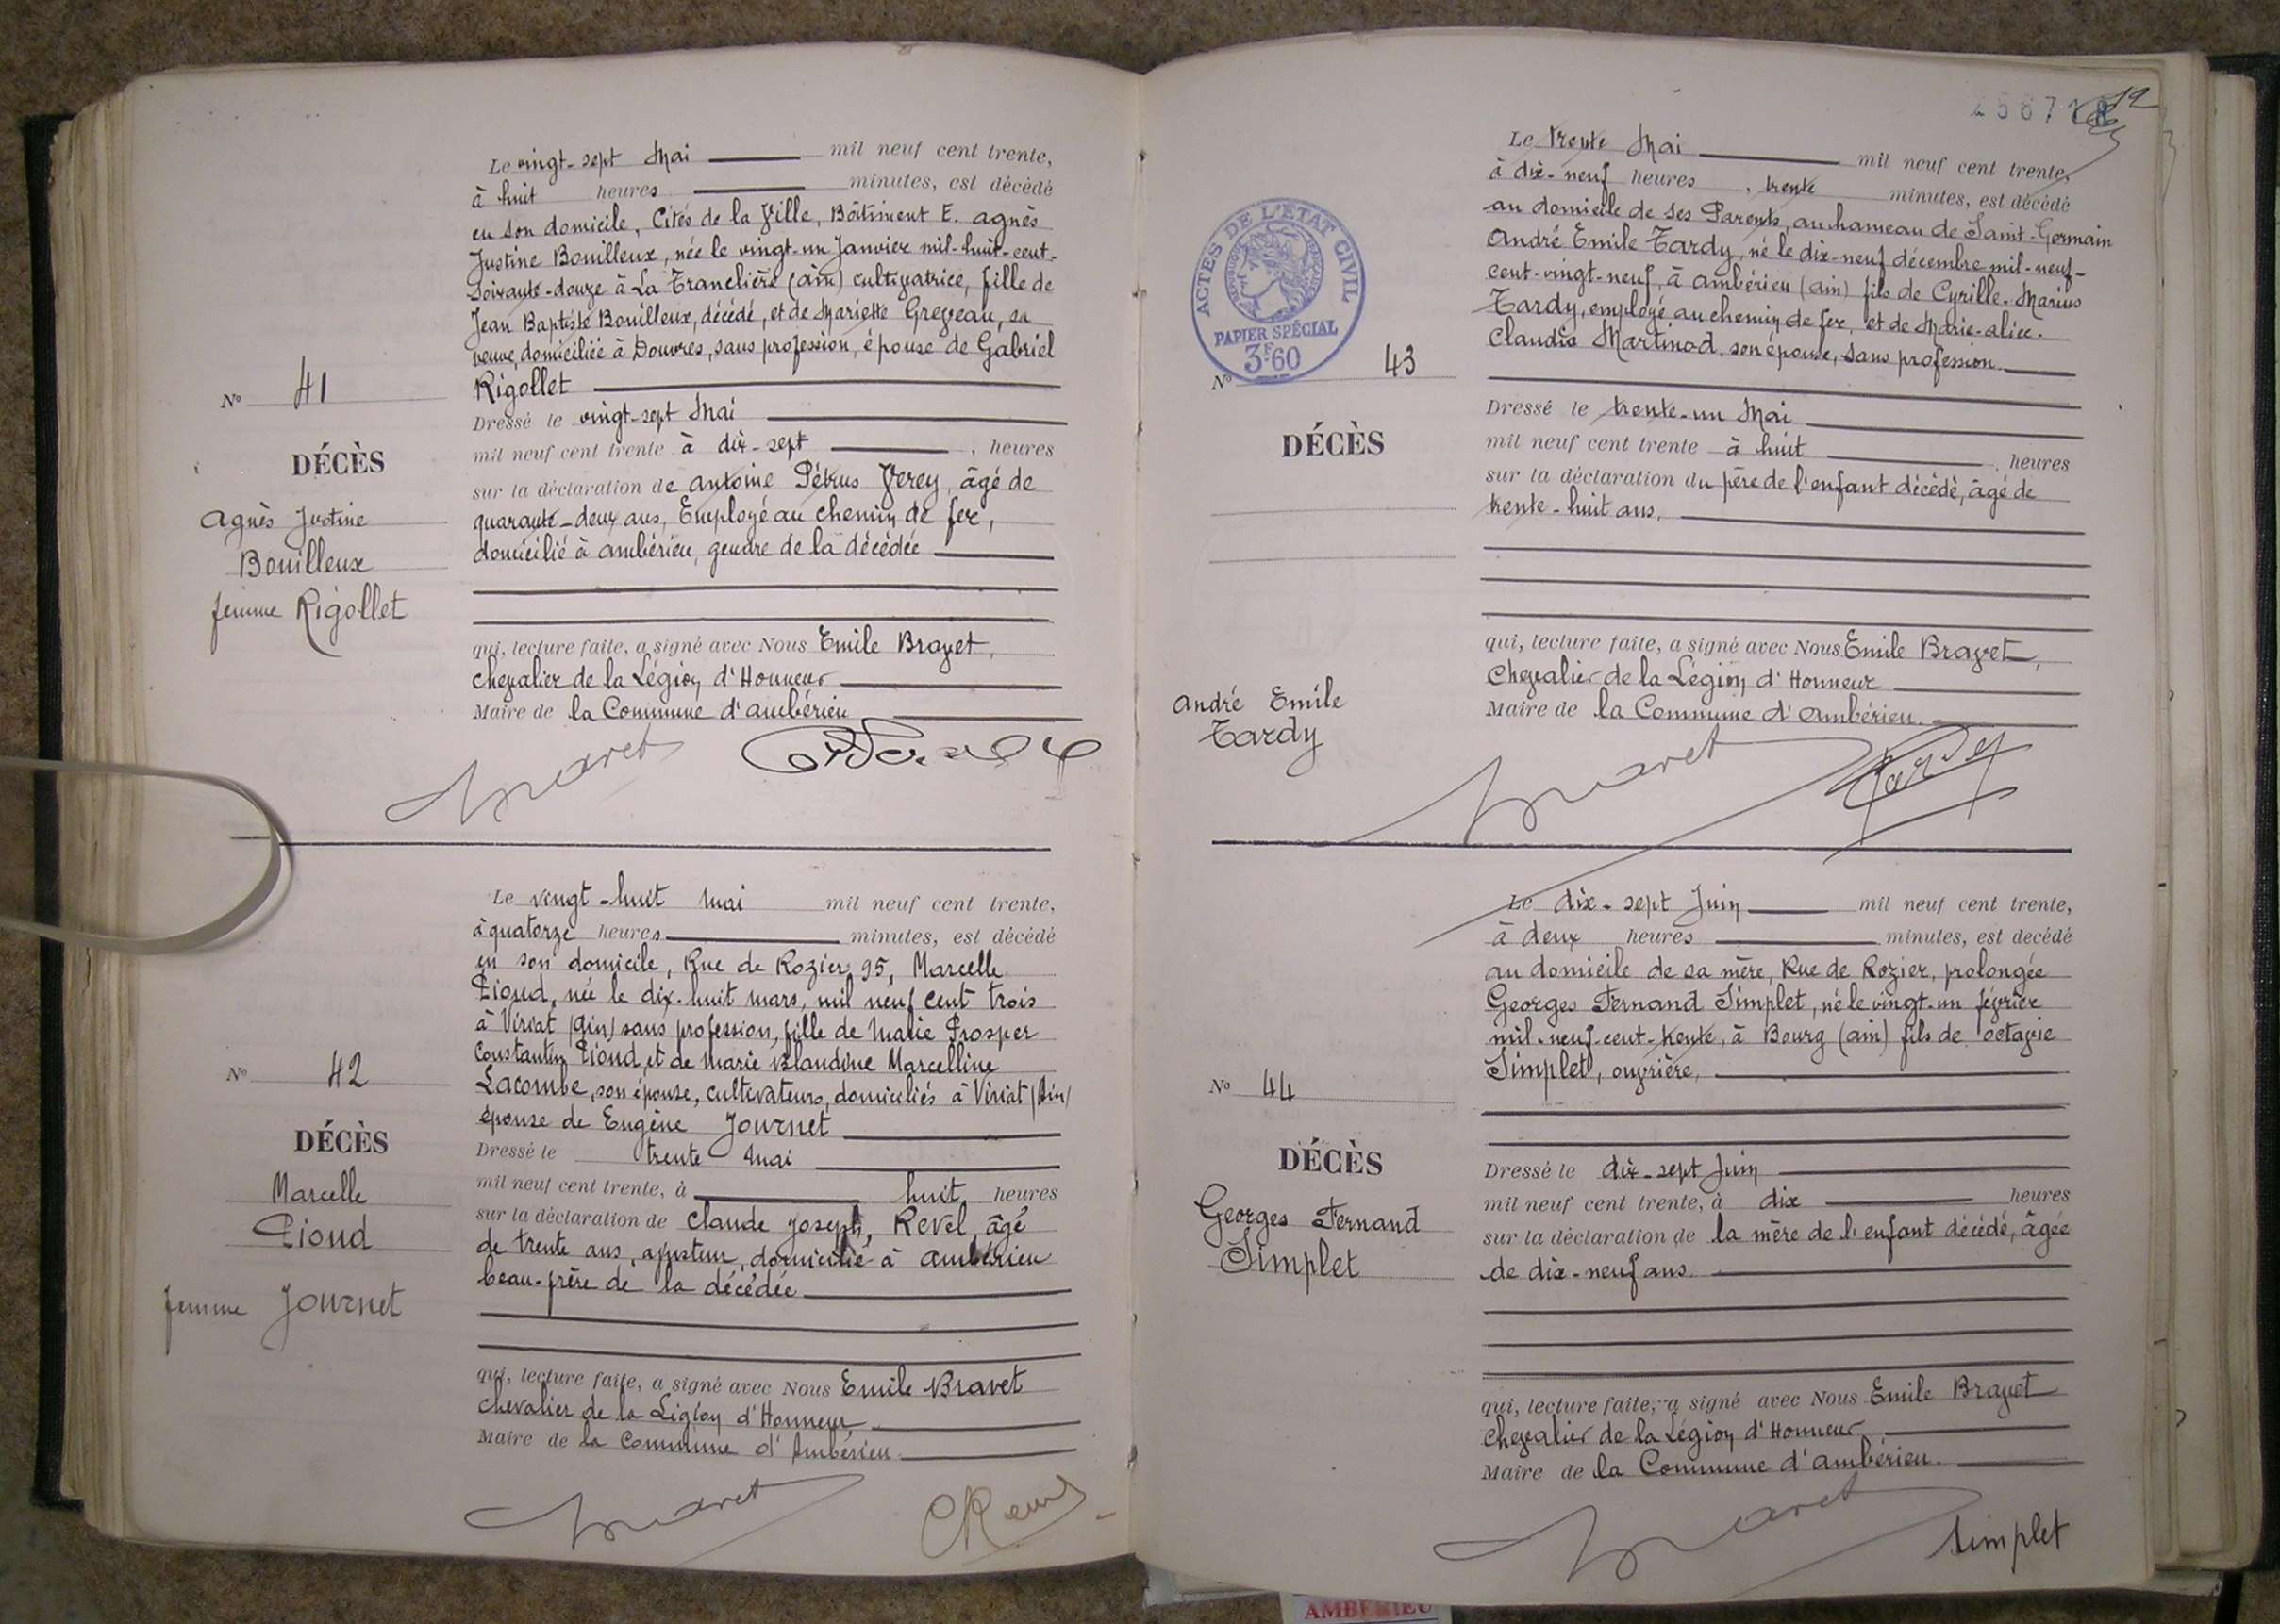 Le vingt-sept Mai mil neuf cent trente,
à huit heures minutes, est décédé
en son domicile, Cités de la Ville, Bâtiment E. agnès
Justine Bouilleux, née le vingt-un Janvier mil-huit-cent-
soixante-douze à La Tranclière (ain) cultivatrice, fille de
Jean Baptiste Bouilleux, décédé, et de Mariette Greveau, sa
veuve, domiciliée à Douvres, sans profession, épouse de Gabriel
Rigollet
N° 41
DÉCÈS
agnès Justine
Bouilleux
femme Rigollet
Dressé le vingt-sept Mai
mil neuf cent trente à dix-sept heures
sur la déclaration de antoine Pétrus Verey, âgé de
quarante-deux ans, Employé au chemin de fer,
domicilié à ambérieu, gendre de la décédée
qui, lecture faite, a signé avec Nous Emile Bravet,
chevalier de la Légion d'Honneur
Maire de la Commune d'ambérieu
Le vingt-huit mai mil neuf cent trente,
à quatorze heures minutes, est décédé
en son domicile, Rue de Rozier 95, Marcelle
Pioud, née le dix-huit mars, mil neuf cent trois
à Viriat (Ain) sans profession, fille de Marie Prosper
Constantin Pioud, et de Marie Blandine Marcelline
Lacombe, son épouse, cultivateurs, domiciliés à Viriat (Ain)
épouse de Eugène Journet
N° 42
DÉCÈS
Marcelle
Pioud
femme Journet
Dressé le trente mai
mil neuf cent trente, à huit heures
sur la déclaration de Claude Joseph, Revel, âgé
de trente ans, ajusteur, domicilié à Ambérieu
beau-frère de la décédée
qui, lecture faite, a signé avec Nous Emile Bravet
chevalier de la Légion d'Honneur
Maire de la Commune d'Ambérieu
Le trente Mai mil neuf cent trente,
à dix-neuf heures, trente minutes, est décédé
au domicile de ses Parents, au hameau de Saint-Germain
André Emile Tardy, né le dix-neuf décembre mil-neuf-
cent-vingt-neuf, à ambérieu (ain) fils de Cyrille-Marius
Tardy, employé au chemin de fer, et de Marie-alice-
Claudia Martinod, son épouse, sans profession
ACTES DE L'ÉTAT CIVIL
PAPIER SPÉCIAL
3F60
N° 43
DÉCÈS
André Emile
Tardy
Dressé le trente-un Mai
mil neuf cent trente à huit heures
sur la déclaration du père de l'enfant décédé, âgé de
trente-huit ans,
qui, lecture faite, a signé avec Nous Emile Bravet,
Chevalier de la Légion d'Honneur
Maire de la Commune d'Ambérieu.
Le dix-sept Juin mil neuf cent trente,
à deux heures minutes, est decédé
au domicile de sa mère, Rue de Rozier, prolongée
Georges Fernand Simplet, né le vingt-un février
mil-neuf-cent-trente, à Bourg (ain) fils de octavie
Simplet, ouvrière,
N° 44
DÉCÈS
Georges Fernand
Simplet
Dressé le dix-sept Juin
mil neuf cent trente, à dix heures
sur la déclaration de la mère de l'enfant décédé, âgée
de dix-neuf ans.
qui, lecture faite, a signé avec Nous Emile Bravet
Chevalier de la Légion d'Honneur
Maire de la Commune d'ambérieu.
Simplet
AMBERIEU